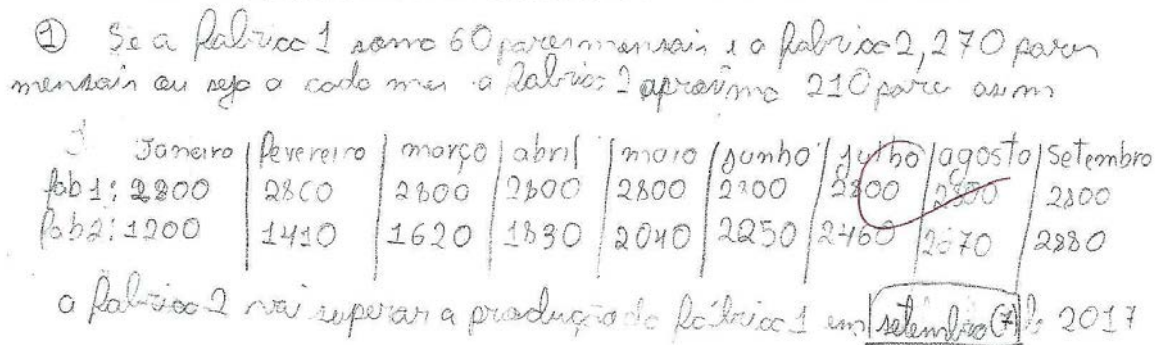 ① Se a fabrica 1 soma 60 pares mensais e a fabrica 2, 270 pares
mensais ou seja a cada mes a fabrica 2 aproxima 210 pares assim
Janeiro | fevereiro | março | abril | maio | Junho | Julho | agosto | Setembro
fab 1: 2800 | 2800 | 2800 | 2800 | 2800 | 2800 | 2800 | 2800 | 2800
fab 2: 1200 | 1410 | 1620 | 1830 | 2040 | 2250 | 2460 | 2670 | 2880
a fabrica 2 vai superar a produção da fábrica 1 em setembro (7) de 2017